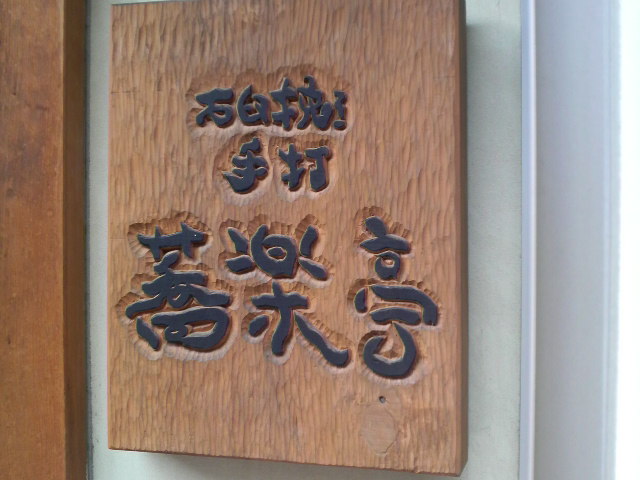 石臼挽き
手打
蕎楽亭